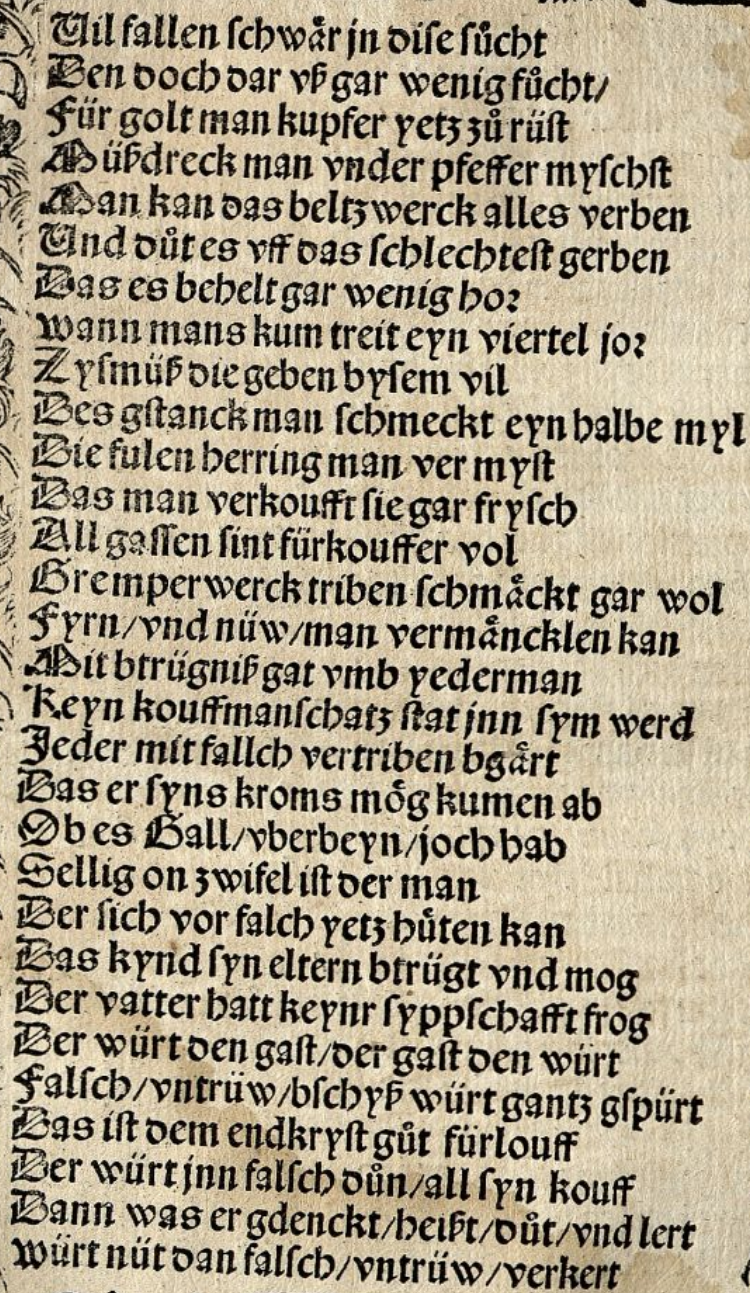 Vil fallen schwår jn dise sůcht
Den doch dar vß gar wenig fůcht/
Für golt man kupfer yetz zů rüst
Müßdreck man vnder pfeffer myschst
Man kan das beltzwerck alles verben
Vnd důt es vff das schlechtest gerben
Das es behelt gar wenig hor
wann mans kum treit eyn viertel jor
Zysmüß die geben bysem vil
Des gstanck man schmeckt eyn halbe myl
Die fulen herring man ver myst
Das man verkoufft sie gar frysch
All gassen sint fürkouffer vol
Gremperwerck triben schmåckt gar wol
Fyrn/vnd nüw/man vermåncklen kan
Mit btrügniß gat vmb yederman
Keyn kouffmanschatz stat jnn sym werd
Jeder mit fallch vertriben bgårt
Das er syns kroms mög kumen ab
Ob es Gall/vberbeyn/joch hab
Sellig on zwifel ist der man
Der sich vor falch yetz hůten kan
Das kynd syn eltern btrügt vnd mog
Der vatter hatt keynr syppschafft frog
Der würt den gast/der gast den würt
Falsch/vntrüw/bschyß würt gantz gspürt
Das ist dem endkryst gůt fürlouff
Der würt jnn falsch důn/all syn kouff
Dann was er gdenckt/heißt/důt/vnd lert
würt nüt dan falsch/vntrüw/verkert